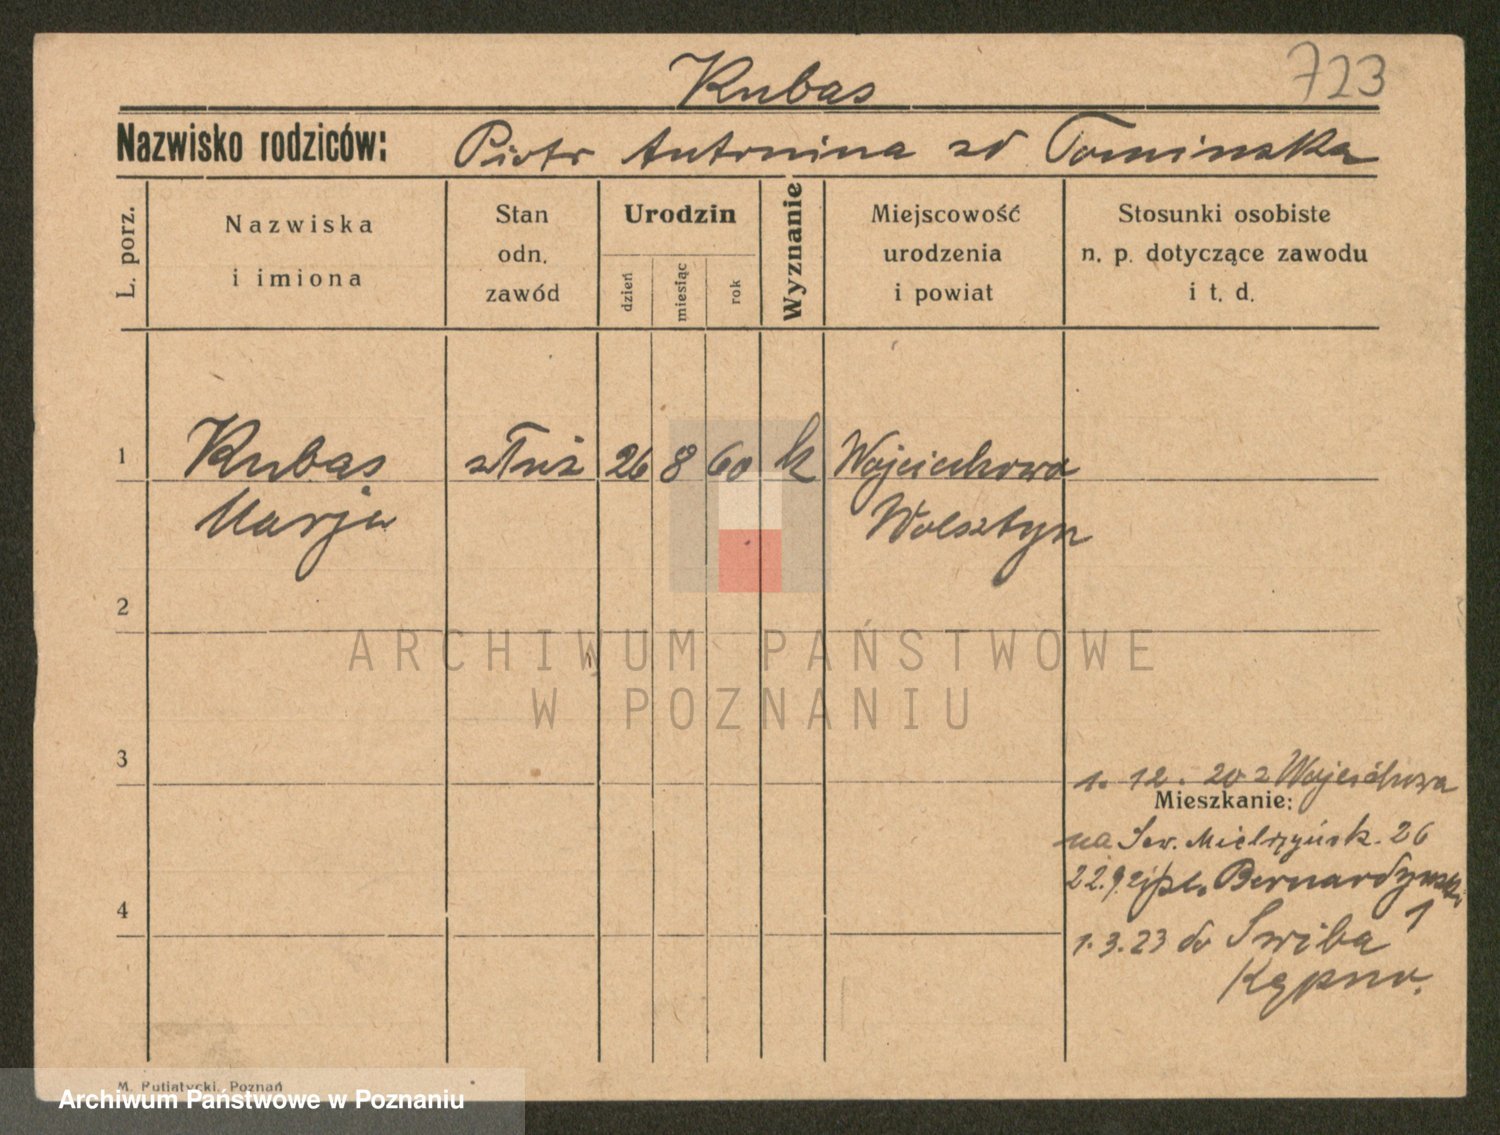 Kubas
723
Nazwisko rodziców: Piotr Antonina zd Tominska
L. porz.
Nazwiska
i imiona
Stan
odn.
zawód
Urodzin
dzień
miesiąc
rok
Wyznanie
Miejscowość
urodzenia
i powiat
Stosunki osobiste
n. p. dotyczące zawodu
i t. d.
1 Kubas służ 26 8 60 k Wojciechowa
Marja Wolsztyn
2
ARCHIWUM PAŃSTWOWE
W POZNANIU
3
1. 12. 20 z Wojciechowa
Mieszkanie:
na Sew. Mielżyńsk. 26
22.9.21 pl. Bernardyński
4
1
1.3.23 do Swiba
Kępno.
M. Putiatycki, Poznań
Archiwum Państwowe w Poznaniu